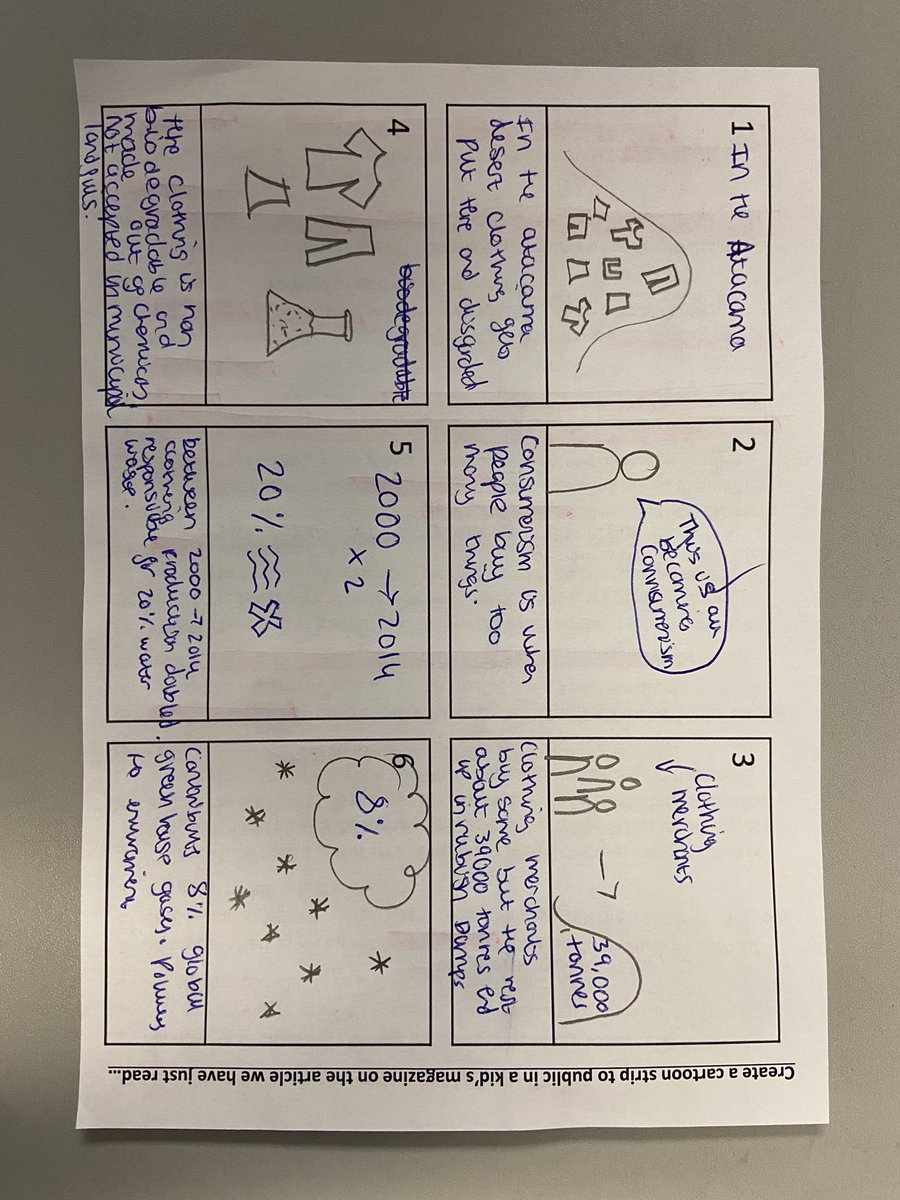 Create a cartoon strip to public in a kid's magazine on the article we have just read...
1 In the Atacama
In the atacama
desert clothing gets
put there and disgarded
2
This is all
becomes
consumerism
Consumerism is when
people buy too
many things.
3
Clothing
merchants
39,000
tonnes
Clothing merchants
buy some but the rest
about 39000 tonnes end
up in rubbish Damps
4
biodegradable
there clothing is non
biodegradable and
made out of chemicals
not accepted in municipal
landfills.
5
2000 → 2014
x 2
20%
between 2000 → 2014
clothing production doubled.
responsible for 20% water
waste.
6
8%
Contributes 8% global
green house gases.
to